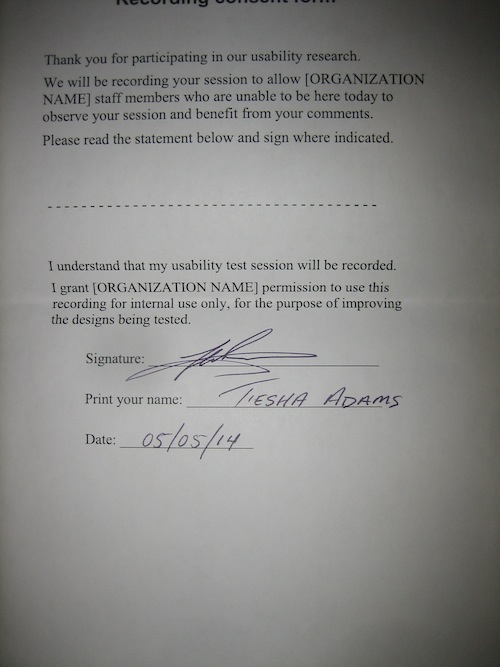 Recording consent form
Thank you for participating in our usability research.
We will be recording your session to allow [ORGANIZATION
NAME] staff members who are unable to be here today to
observe your session and benefit from your comments.
Please read the statement below and sign where indicated.
I understand that my usability test session will be recorded.
I grant [ORGANIZATION NAME] permission to use this
recording for internal use only, for the purpose of improving
the designs being tested.
Signature:
Print your name: TIESHA ADAMS
Date: 05/05/14